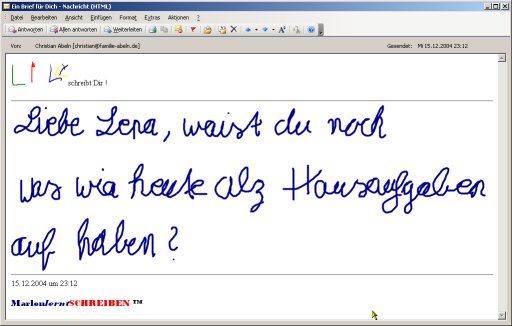 Ein Brief für Dich - Nachricht (HTML)
Datei Bearbeiten Ansicht Einfügen Format Extras Aktionen ?
Antworten Allen antworten Weiterleiten
Von: Christian Abeln [christian@familie-abeln.de] Gesendet: Mi 15.12.2004 23:12
schreibt Dir !
Liebe Lena, waist du noch
was wia heute alz Hausaufgaben
auf haben?
15.12.2004 um 23:12
MarlonlerntSCHREIBEN ™